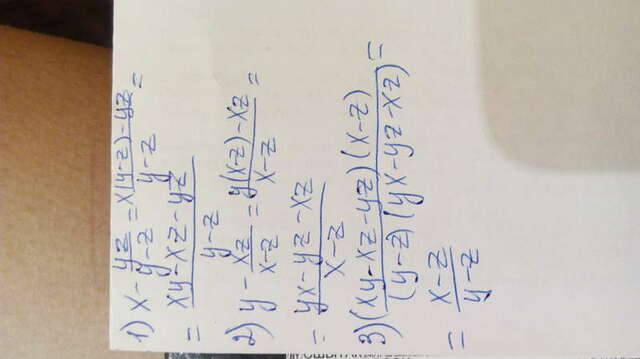 1) x - yz/y-z = x(y-z)-yz/y-z =
= xy-xz-yz/y-z
2) y - xz/x-z = y(x-z)-xz/x-z =
= yx-yz-xz/x-z
3) (xy-xz-yz)(x-z)/(y-z)(yx-yz-xz) =
= x-z/y-z